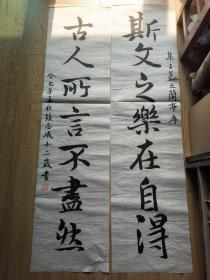 集王羲之蘭亭序
斯文之樂在自得
古人所言不盡然
癸巳年孟秋張志成十二歲書